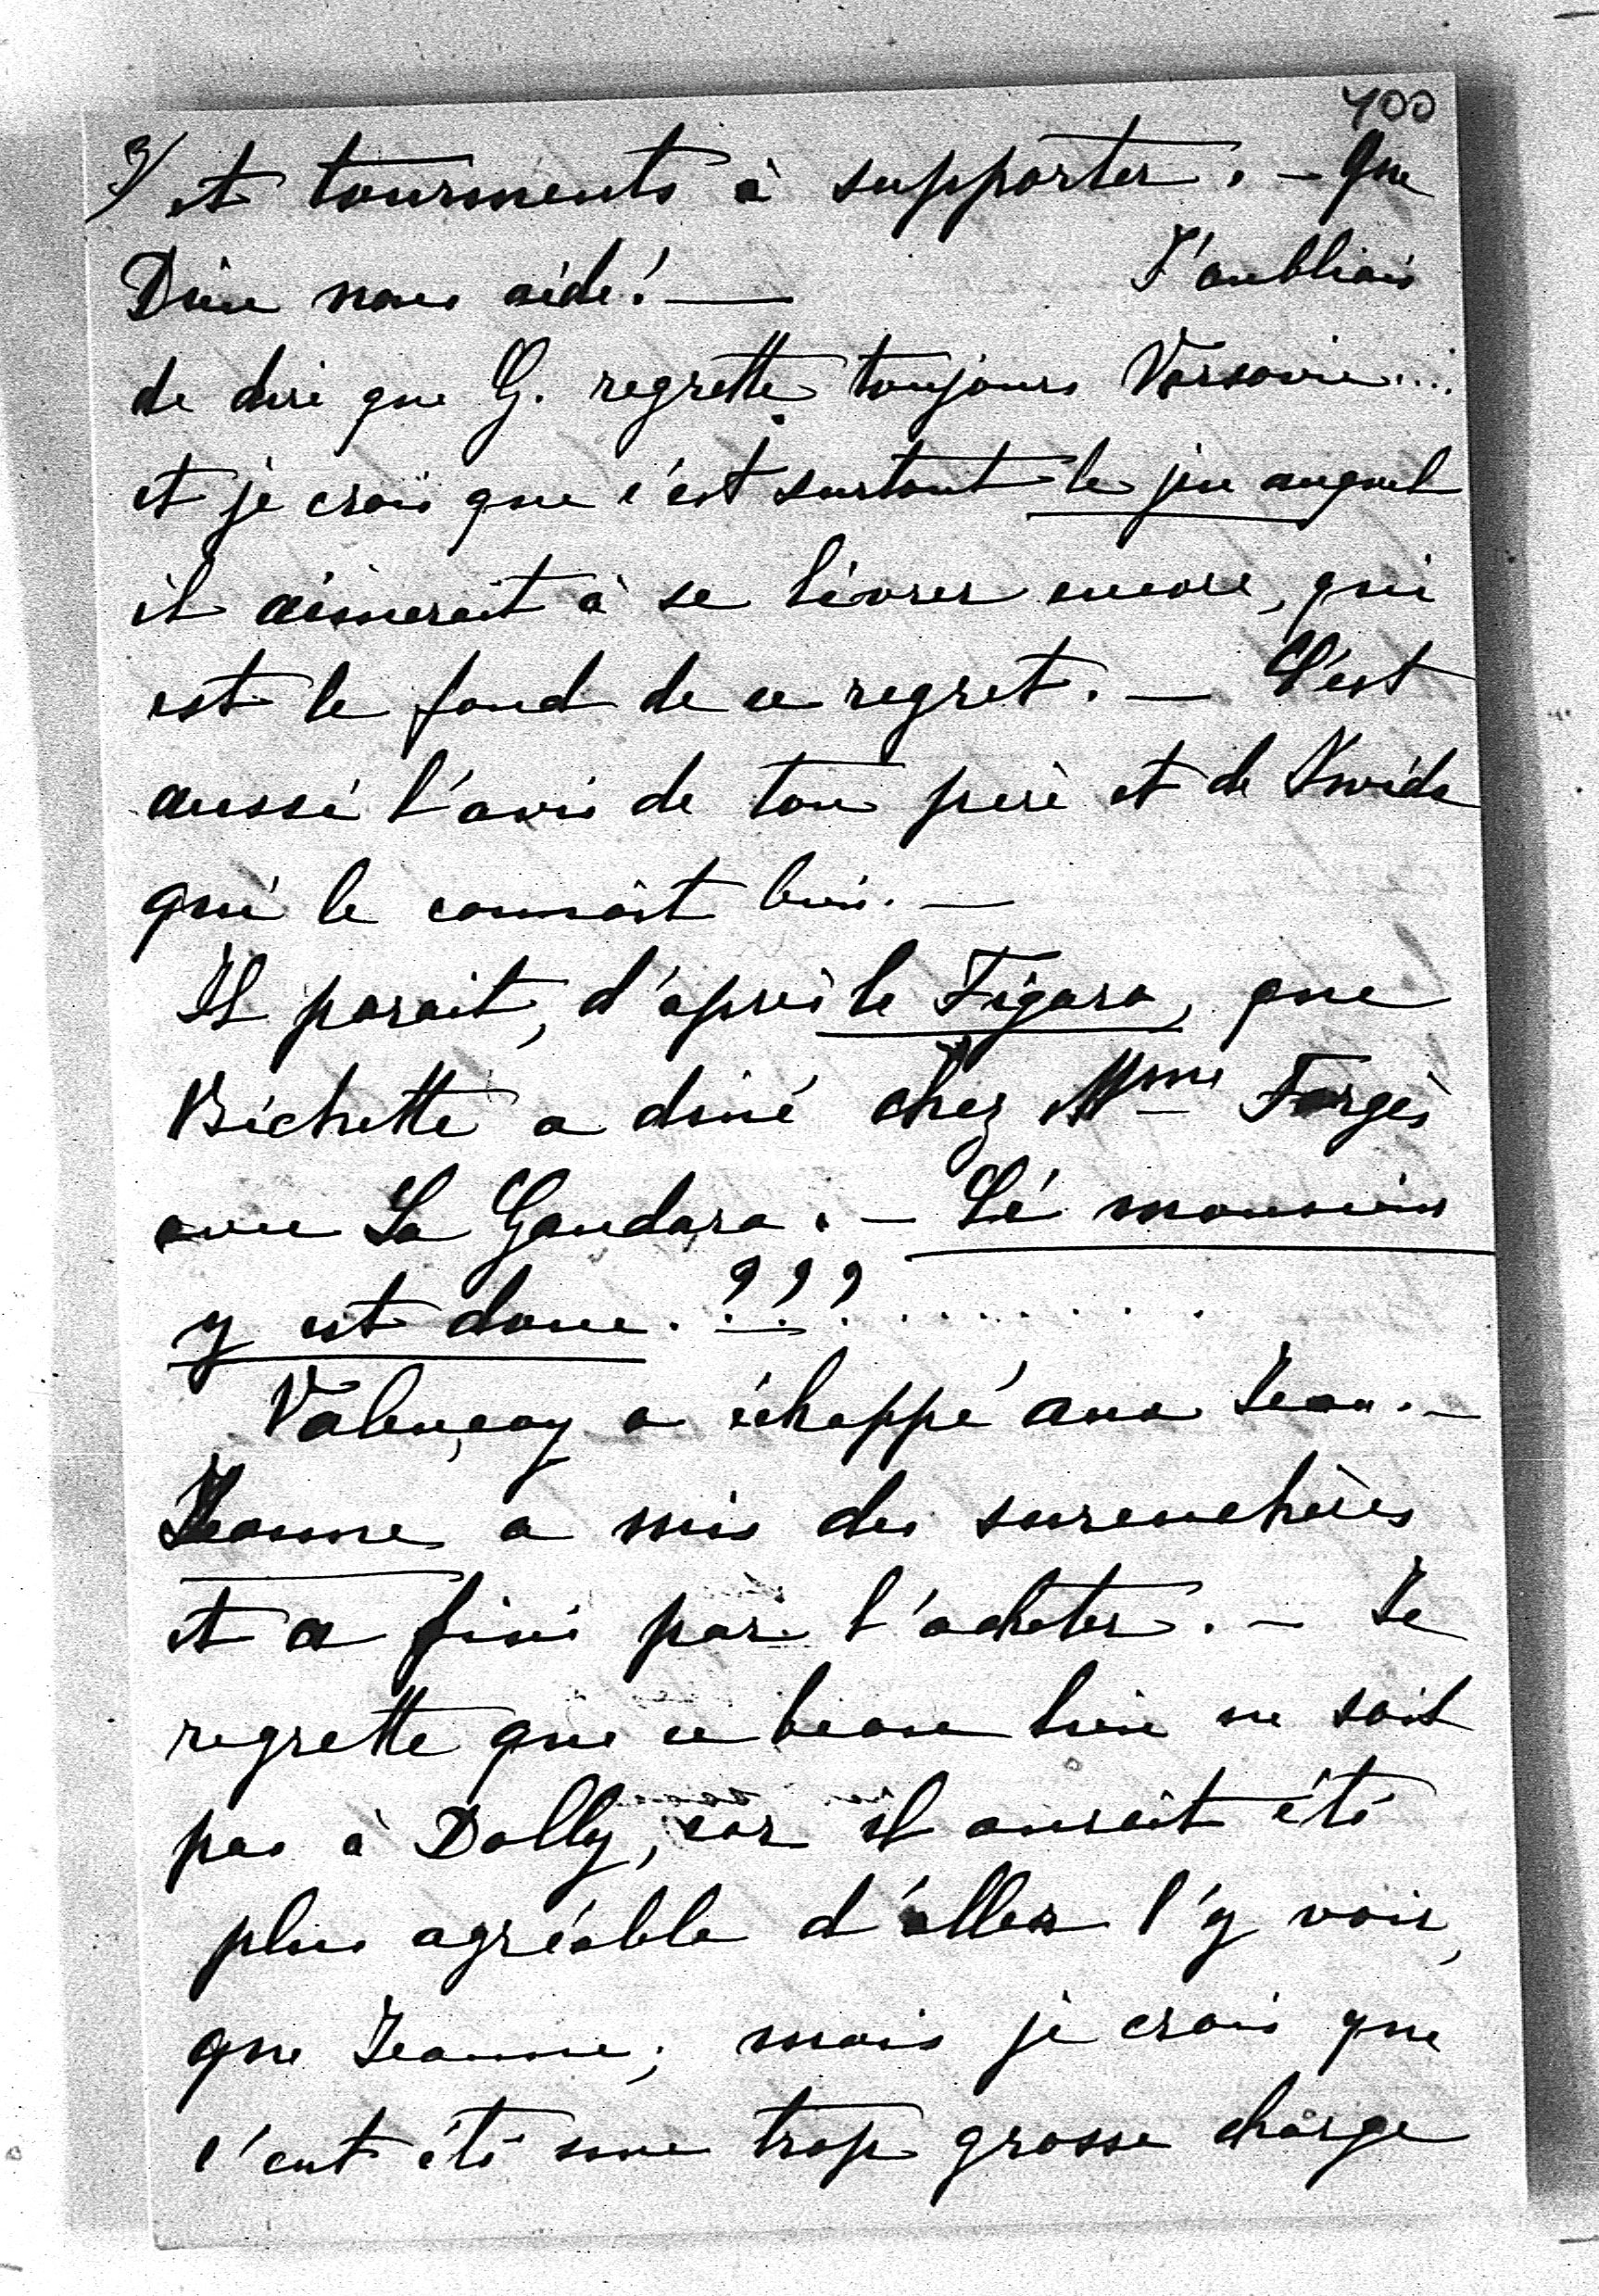 400
3/ et tourments à supporter. – Que
Dieu nous aide! — J'oubliais
de dire que G. regrette toujours Varsovie....
et je crois que c'est surtout le jeu auquel
il aimerait à se livrer encore, qui
est le fond de ce regret. — C'est
aussi l'avis de ton père et de
qui le connait bien. —
Il parait, d'après le Figaro, que
Bichette a diné chez Mme Forgès
avec La Gandara. – Lé monsieur
y est donc. ???.........
Valençay a échappé aux Jean. –
Jeanne a mis des surenchères
et a fini par l'acheter. – Je
regrette que ce beau lieu ne soit
pas à Dolly, car il aurait été
plus agréable d'aller l'y voir,
que Jeanne; mais je crois que
c'eut été une trop grosse charge